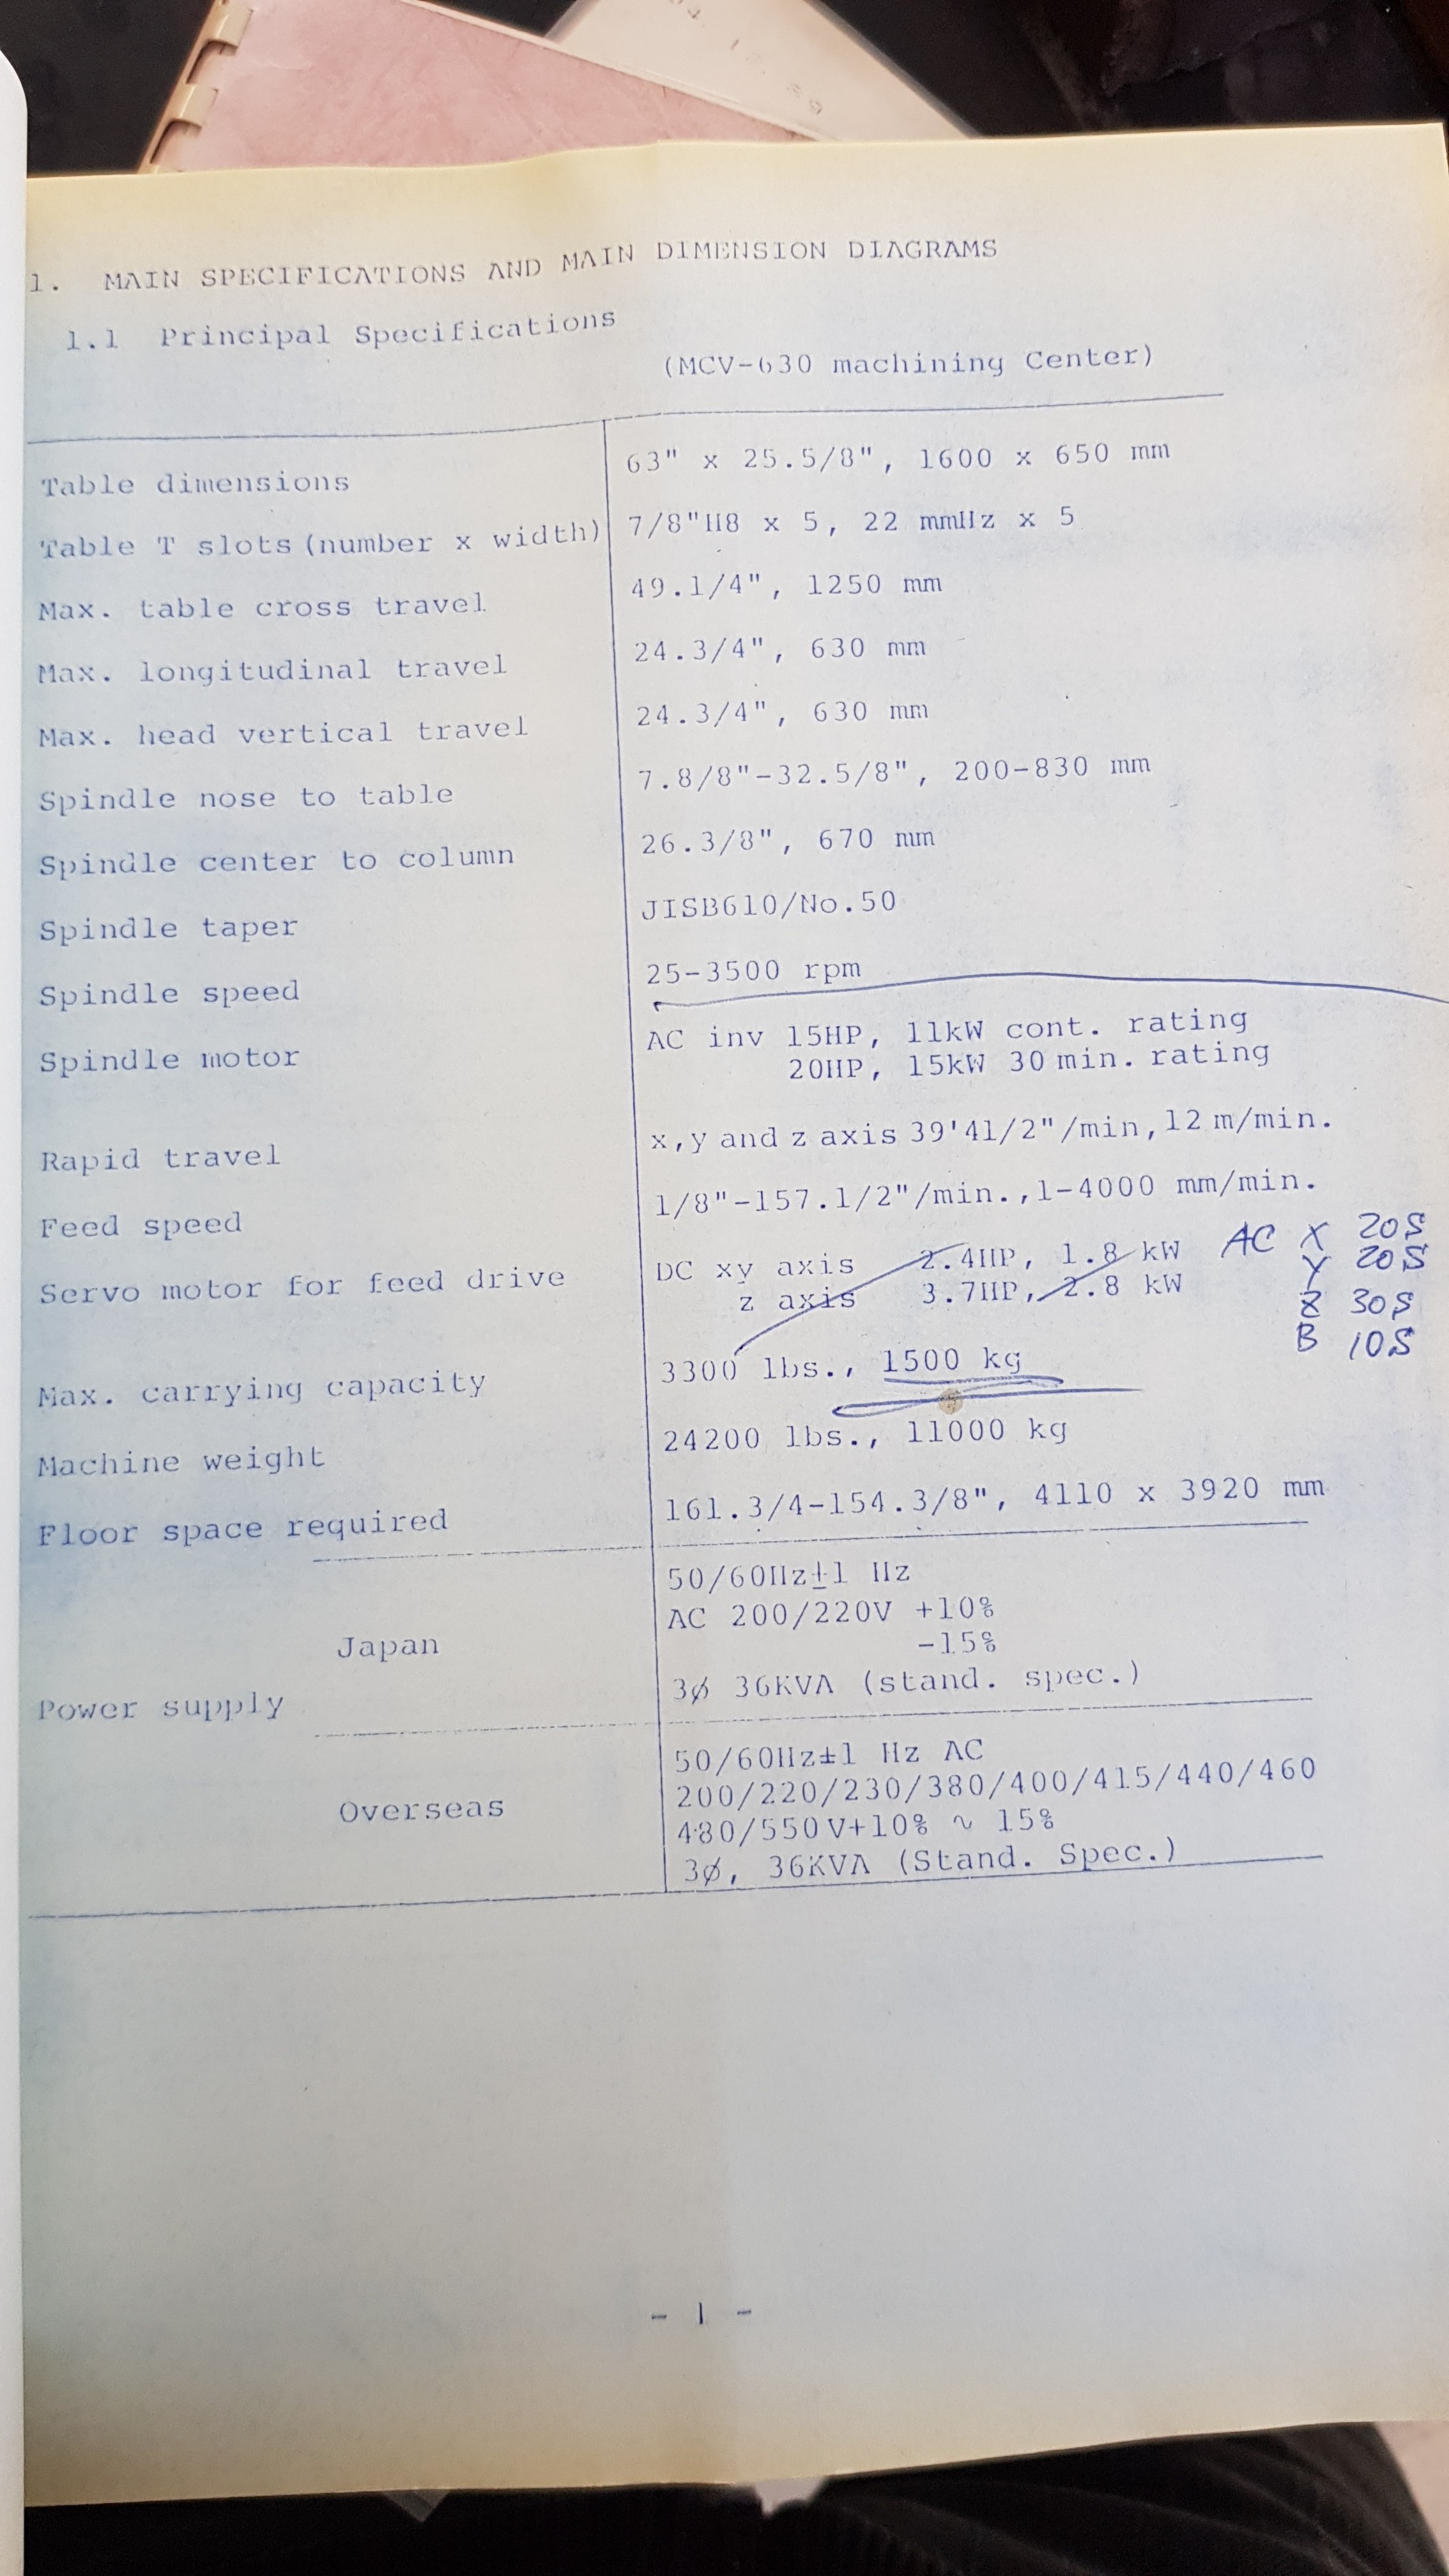 1. MAIN SPECIFICATIONS AND MAIN DIMENSION DIAGRAMS
1.1 Principal Specifications
(MCV-630 machining Center)
Table dimensions 63" x 25.5/8", 1600 x 650 mm
Table T slots (number x width) 7/8"H8 x 5, 22 mmHz x 5
Max. table cross travel 49.1/4", 1250 mm
Max. longitudinal travel 24.3/4", 630 mm
Max. head vertical travel 24.3/4", 630 mm
Spindle nose to table 7.8/8"-32.5/8", 200-830 mm
Spindle center to column 26.3/8", 670 mm
Spindle taper JISB610/No.50
Spindle speed 25-3500 rpm
Spindle motor AC inv 15HP, 11kW cont. rating
20HP, 15kW 30 min. rating
Rapid travel x,y and z axis 39'41/2"/min, 12 m/min.
Feed speed 1/8"-157.1/2"/min., 1-4000 mm/min.
Servo motor for feed drive DC xy axis 2.4HP, 1.8 kW AC X 20S
z axis 3.7HP, 2.8 kW Y 20S
Z 30S
B 10S
Max. carrying capacity 3300 lbs., 1500 kg
Machine weight 24200 lbs., 11000 kg
Floor space required 161.3/4-154.3/8", 4110 x 3920 mm
Power supply
Japan
50/60Hz±1 Hz
AC 200/220V +10%
-15%
3ø 36KVA (stand. spec.)
Overseas
50/60Hz±1 Hz AC
200/220/230/380/400/415/440/460
480/550V+10% ~ 15%
3ø, 36KVA (Stand. Spec.)
- 1 -